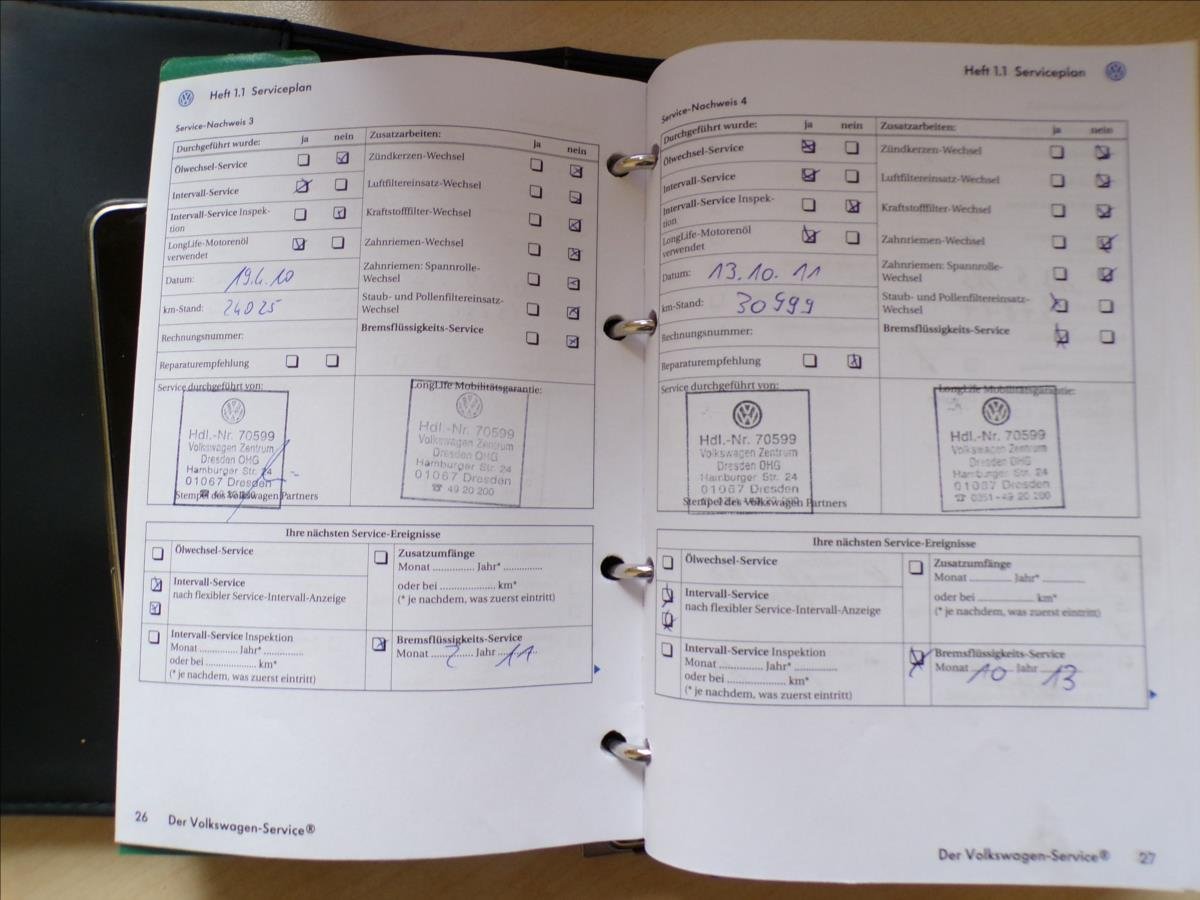 Heft 1.1 Serviceplan
Service-Nachweis 3
Durchgeführt wurde: ja nein
Ölwechsel-Service
Intervall-Service
Intervall-Service Inspek-
tion
LongLife-Motorenöl
verwendet
Datum: 19.4.10
km-Stand: 24025
Rechnungsnummer:
Reparaturempfehlung
Zusatzarbeiten: ja nein
Zündkerzen-Wechsel
Luftfiltereinsatz-Wechsel
Kraftstofffilter-Wechsel
Zahnriemen-Wechsel
Zahnriemen: Spannrolle-
Wechsel
Staub- und Pollenfiltereinsatz-
Wechsel
Bremsflüssigkeits-Service
Service durchgeführt von:
Hdl.-Nr. 70599
Volkswagen Zentrum
Dresden OHG
Hamburger Str. 24
01067 Dresden
Stempel des Volkswagen Partners
LongLife Mobilitätsgarantie:
Hdl.-Nr. 70599
Volkswagen Zentrum
Dresden OHG
Hamburger Str. 24
01067 Dresden
☎ 49 20 200
Ihre nächsten Service-Ereignisse
Ölwechsel-Service
Intervall-Service
nach flexibler Service-Intervall-Anzeige
Intervall-Service Inspektion
Monat ............. Jahr* .............
oder bei ........................ km*
(* je nachdem, was zuerst eintritt)
Zusatzumfänge
Monat ............. Jahr* .............
oder bei ........................ km*
(* je nachdem, was zuerst eintritt)
Bremsflüssigkeits-Service
Monat 2 Jahr 11
26 Der Volkswagen-Service®
Heft 1.1 Serviceplan
Service-Nachweis 4
Durchgeführt wurde: ja nein
Ölwechsel-Service
Intervall-Service
Intervall-Service Inspek-
tion
LongLife-Motorenöl
verwendet
Datum: 13.10.11
km-Stand: 30999
Rechnungsnummer:
Reparaturempfehlung
Zusatzarbeiten: ja nein
Zündkerzen-Wechsel
Luftfiltereinsatz-Wechsel
Kraftstofffilter-Wechsel
Zahnriemen-Wechsel
Zahnriemen: Spannrolle-
Wechsel
Staub- und Pollenfiltereinsatz-
Wechsel
Bremsflüssigkeits-Service
Service durchgeführt von:
Hdl.-Nr. 70599
Volkswagen Zentrum
Dresden OHG
Hamburger Str. 24
01067 Dresden
Stempel des Volkswagen Partners
LongLife Mobilitätsgarantie:
Hdl.-Nr. 70599
Volkswagen Zentrum
Dresden OHG
Hamburger Str. 24
01067 Dresden
☎ 0351 - 49 20 200
Ihre nächsten Service-Ereignisse
Ölwechsel-Service
Intervall-Service
nach flexibler Service-Intervall-Anzeige
Intervall-Service Inspektion
Monat ............. Jahr* .............
oder bei ........................ km*
(* je nachdem, was zuerst eintritt)
Zusatzumfänge
Monat ............. Jahr* .............
oder bei ........................ km*
(* je nachdem, was zuerst eintritt)
Bremsflüssigkeits-Service
Monat 10 Jahr 13
Der Volkswagen-Service® 27